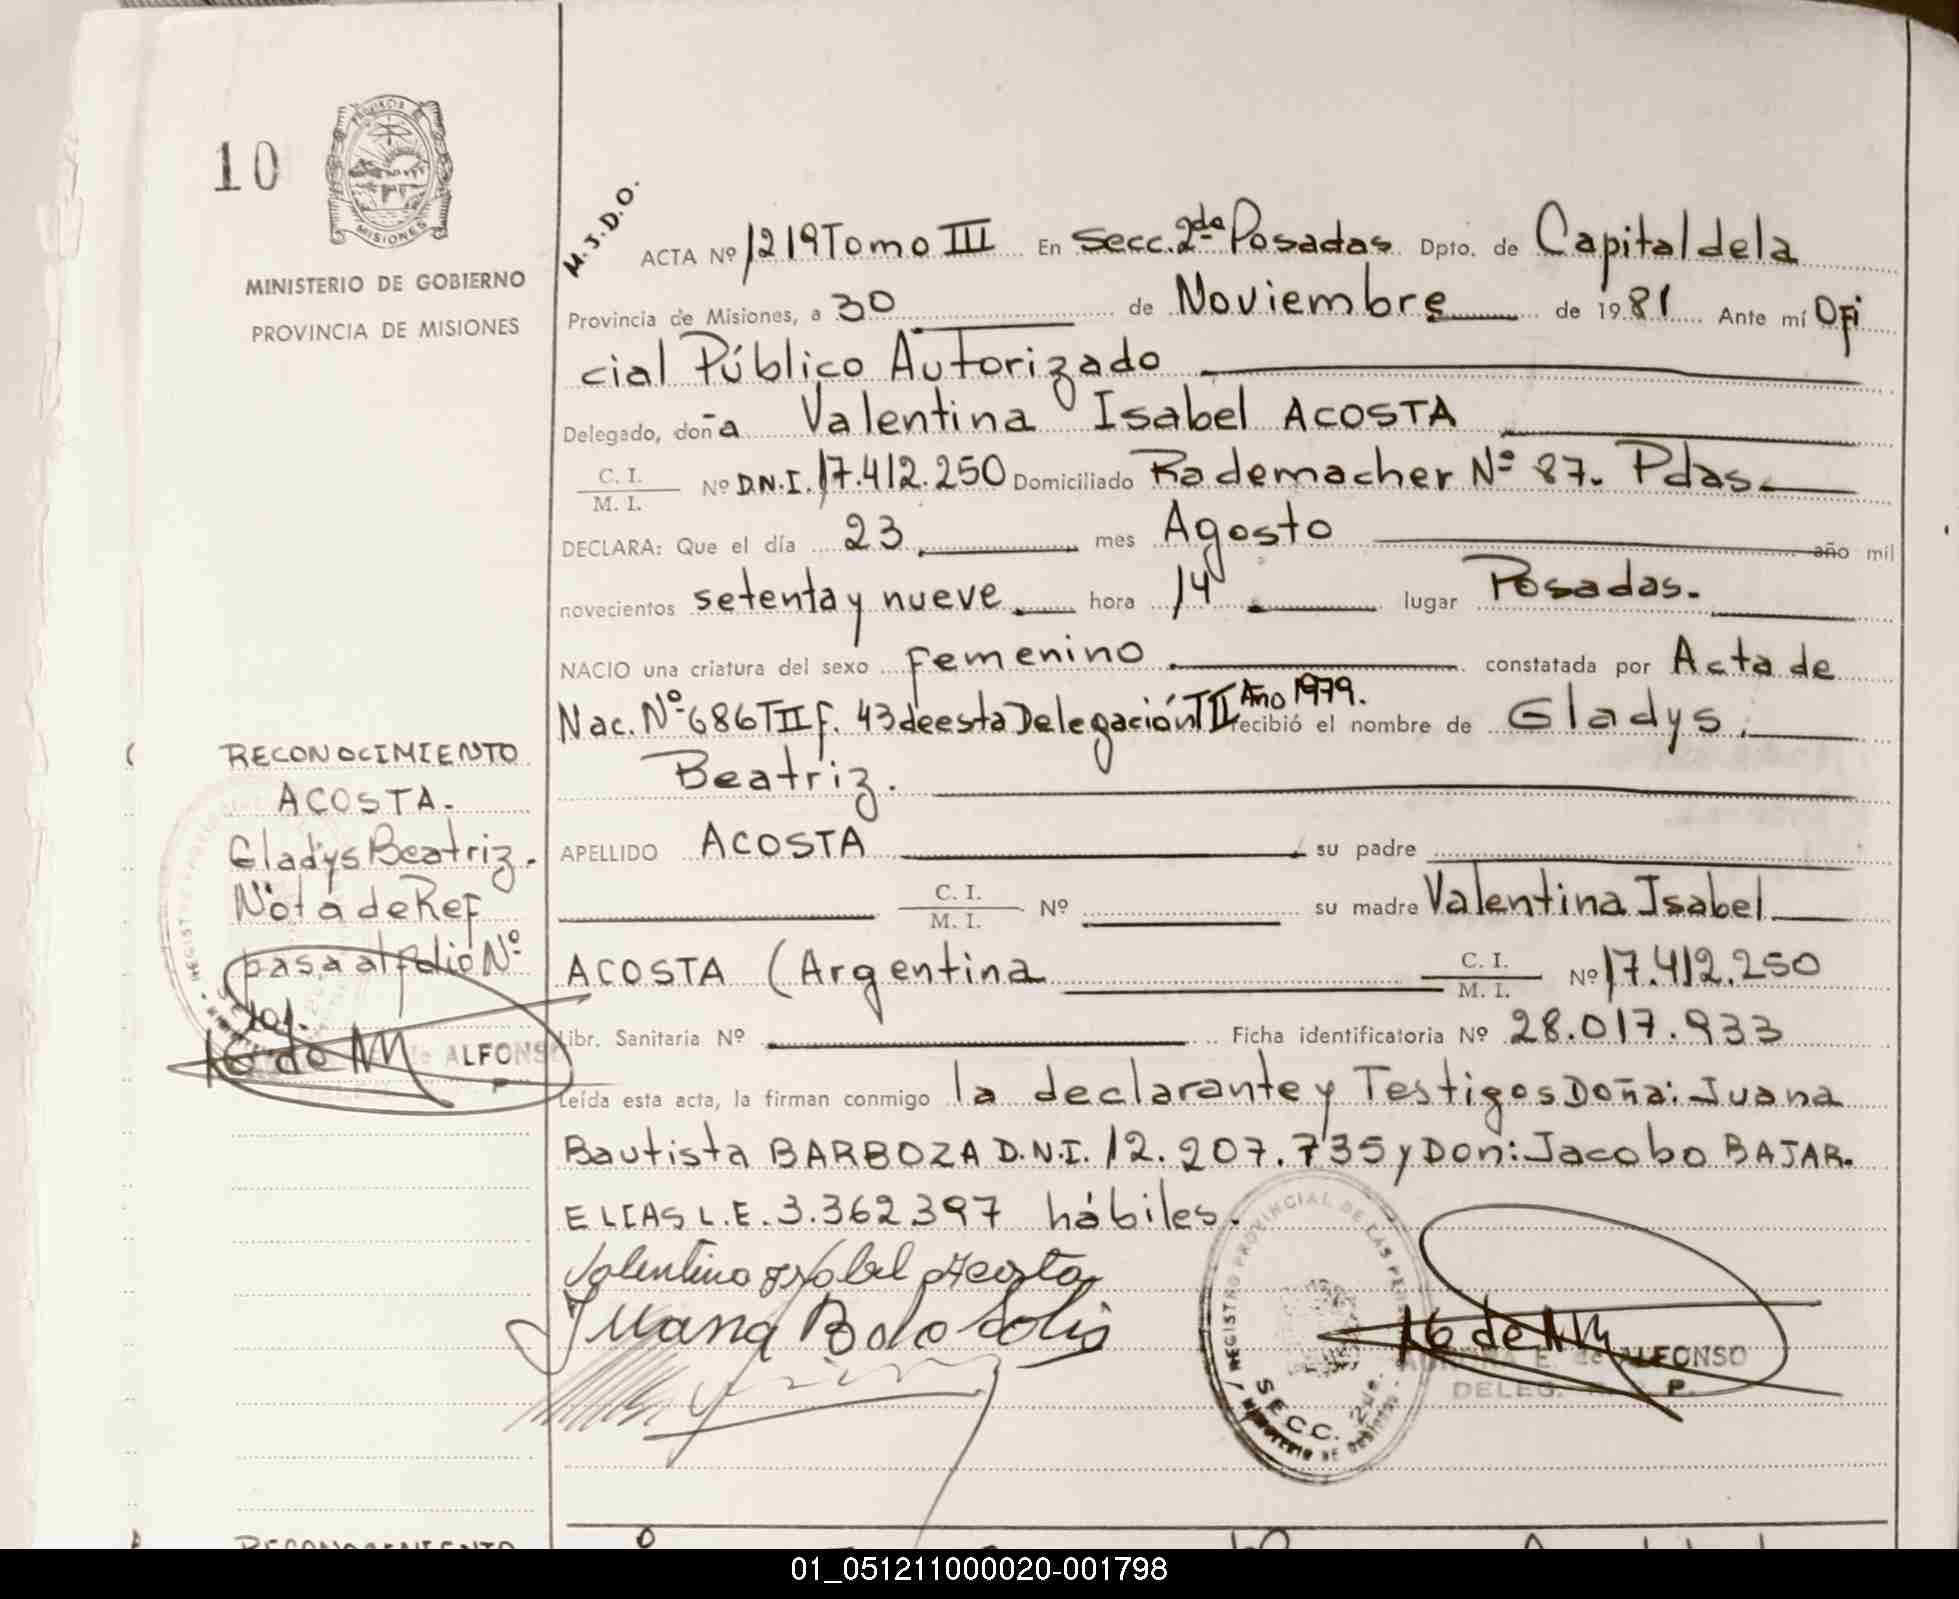 10
PROVINCIA
MISIONES
MINISTERIO DE GOBIERNO
PROVINCIA DE MISIONES
M.J.D.O.
ACTA Nº 1219 Tomo III En Secc. 2da Posadas Dpto. de Capital de la
Provincia de Misiones, a 30 de Noviembre de 1981 Ante mí Ofi
cial Público Autorizado
Delegado, doña Valentina Isabel ACOSTA
C. I.
M. I. Nº D.N.I. 17.412.250 Domiciliado Rademacher Nº 87. Pdas.
DECLARA: Que el día 23 mes Agosto año mil
novecientos setenta y nueve hora 14 lugar Posadas.
NACIO una criatura del sexo femenino constatada por Acta de
Nac. Nº 686 TII f. 43 de esta Delegación TII Año 1979. recibió el nombre de Gladys
Beatriz.
APELLIDO ACOSTA su padre
C. I.
M. I. Nº su madre Valentina Isabel
ACOSTA (Argentina C. I.
M. I. Nº 17.412.250
Libr. Sanitaria Nº Ficha identificatoria Nº 28.017.933
Leída esta acta, la firman conmigo la declarante y Testigos Doña: Juana
Bautista BARBOZA D.N.I. 12.207.735 y Don: Jacobo BAJAR.
ELIAS L.E. 3.362397 hábiles.
Valentina Isabel Acosta
Juana
REGISTRO PROVINCIAL DE LAS PERS
SECC. 2da.
MINISTERIO DE GOBIERNO
AURORA E. de ALFONSO
DELEG. P.
RECONOCIMIENTO
ACOSTA.
Gladys Beatriz.
Nota de Ref
pasa al folio Nº
de ALFONSO
P
RECONOCIMIENTO
01_051211000020-001798